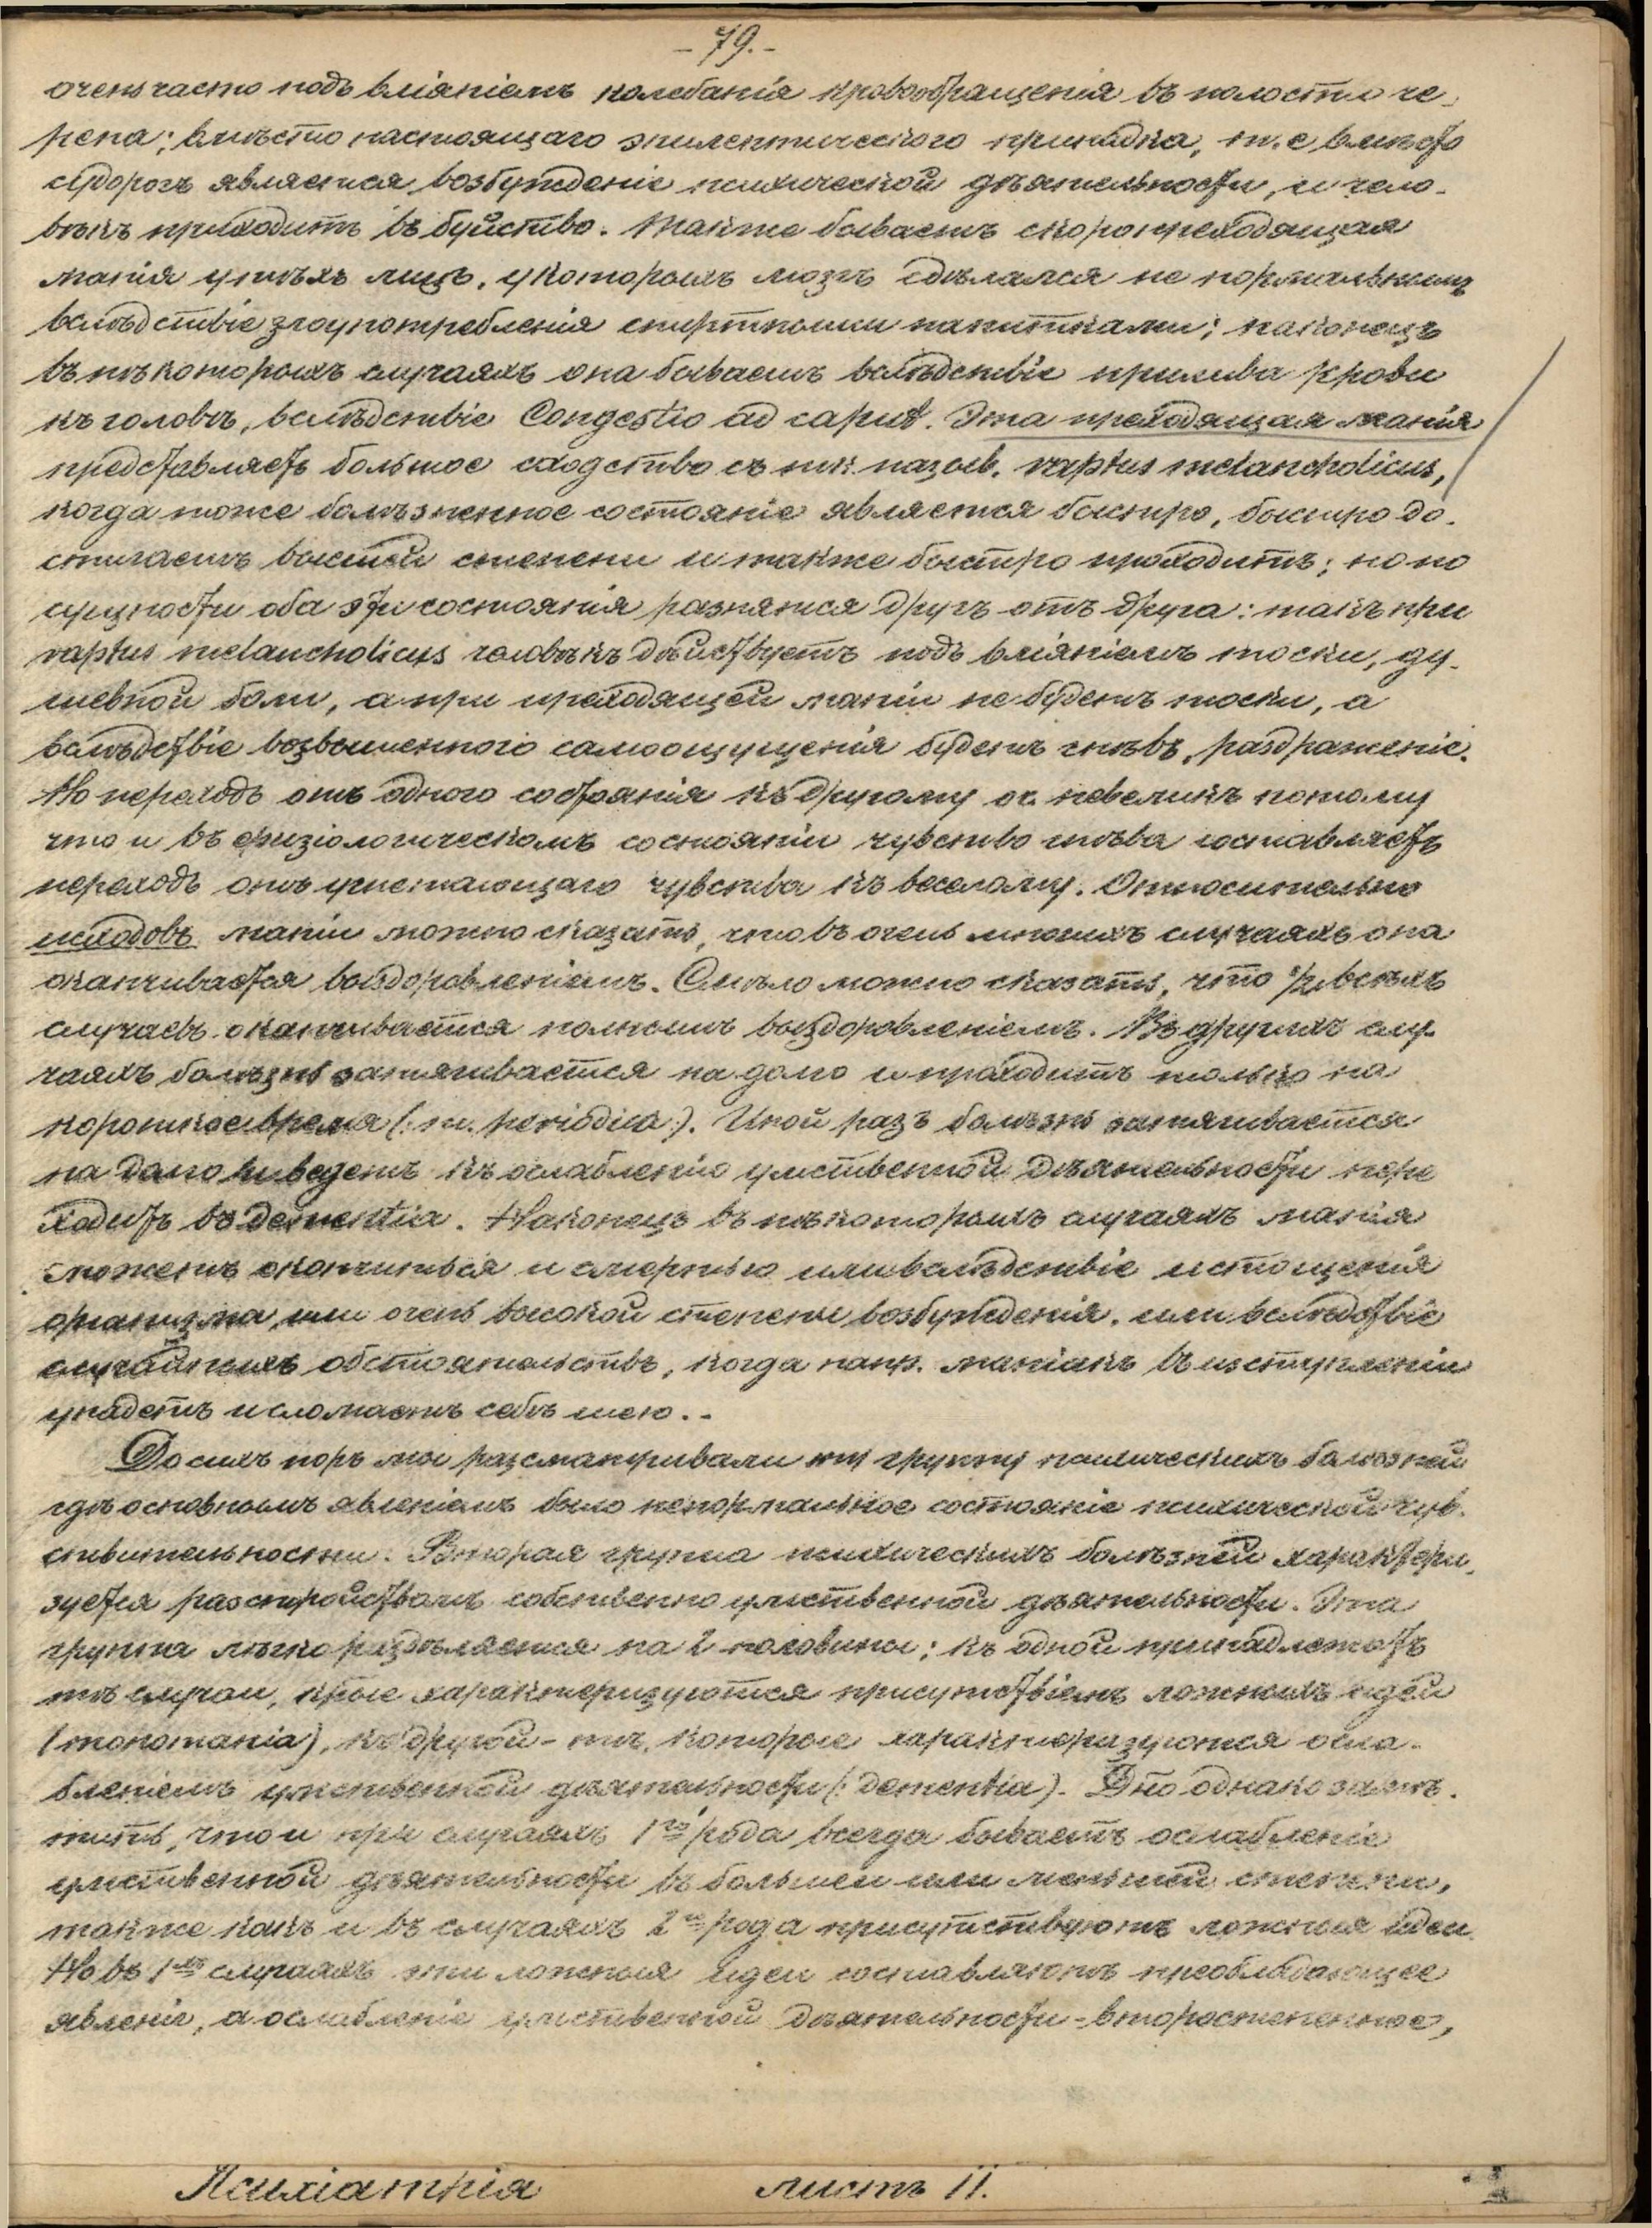 - 79. -
очень часто подъ вліяніемъ колебанія кровообращенія въ полости че-
репа; вмѣсто настоящаго эпилептическаго припадка, т. е вмѣсто
судорогъ является возбужденіе психической дѣятельности, и чело-
вѣкъ приходитъ въ буйство. Также бываетъ скоропреходящая
манія у тѣхъ лицъ, у которыхъ мозгъ сдѣлался не нормальнымъ
вслѣдствіе злоупотребленія спиртными напитками; наконецъ
въ нѣкоторыхъ случаяхъ она бываетъ вслѣдствіе прилива крови
къ головѣ, вслѣдствіе Congestio ad caput. Эта преходящая манія
представляетъ большое сходство съ так. назыв. raptus melancholicus,
когда тоже болѣзненное состояніе является быстро, быстро до-
стигаетъ высшей степени и также быстро проходитъ; но по
сущности оба эти состоянія разнятся другъ отъ друга: такъ при
raptus melancholicus человѣкъ дѣйствуетъ подъ вліяніемъ тоски, ду-
шевной боли, а при преходящей маніи не будетъ тоски, а
вслѣдствіе возвышенного самоощущенія будетъ гнѣвъ, раздраженіе.
Но переходъ отъ одного состоянія къ другому оч. невеликъ потому
что и въ физіологическомъ состояніи чувство гнѣва составляетъ
переходъ отъ угнетающаго чувства къ веселому. Относительно
исходовъ маніи можно сказать, что въ очень многихъ случаяхъ она
оканчивается выздоровленіемъ. Смѣло можно сказать, что ⅔ всѣхъ
случаевъ оканчивается полнымъ выздоровленіемъ. Въ другихъ слу-
чаяхъ болѣзнь затягивается на долго и проходитъ только на
короткое время (: m. periodica :). Иной разъ болѣзнь затягивается
на долго и ведетъ къ ослабленію умственной дѣятельности пере
ходитъ въ dementia. Наконецъ въ нѣкоторыхъ случаяхъ манія
можетъ окончиться и смертью или вслѣдствіе истощенія
организма, или очень высокой степени возбужденія, или вслѣдствіе
случайныхъ обстоятельствъ, когда напр. маніакъ въ изступленіи
упадетъ и сломаетъ себѣ шею. -
До сихъ поръ мы разсматривали ту группу психическихъ болѣзней
гдѣ основнымъ явленіемъ было ненормальное состояніе психической чув-
ствительности. Вторая группа психическихъ болѣзней характери-
зуется разстройствомъ собственно умственной дѣятельности. Эта
группа легко раздѣляется на 2 половины; къ одной принадлежатъ
тѣ случаи, крые характеризуются присутствіемъ ложныхъ идей
(monomania), къ другой - тѣ, которые характеризуются осла-
бленіемъ умственной дѣятельности (: dementia). Дно однако замѣ-
тить, что и при случаяхъ 1го рода всегда бываетъ ослабленіе
умственной дѣятельности въ большей или меньшей степени,
также какъ и въ случаяхъ 2го рода присутствуютъ ложныя идеи.
Но въ 1хъ случаяхъ эти ложныя идеи составляютъ преобладающее
явленіе, а ослабленіе умственной дѣятельности - второстепенное,
Психіатрія листъ 11.